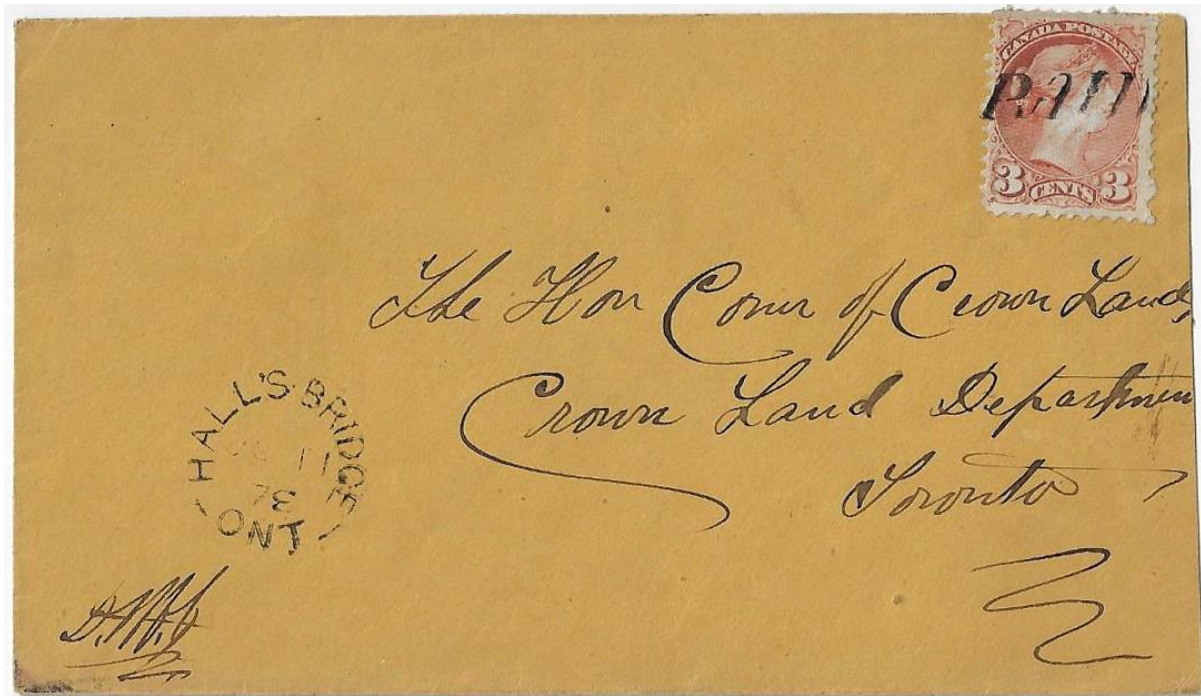 CANADA POSTAGE
PAID
3 CENTS 3
The Hon Comr of Crown Lands,
Crown Land Department
Toronto
HALL'S BRIDGE
11
78
ONT